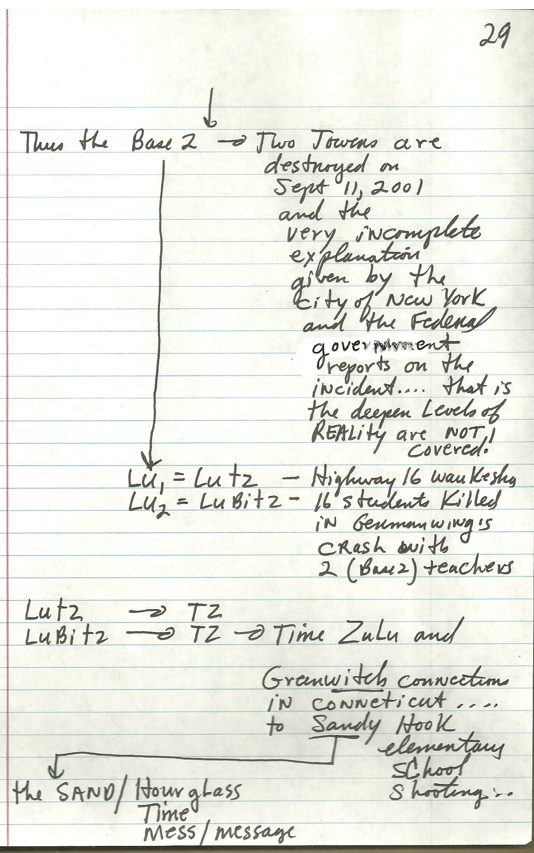 29
Thus the Base 2 → Two Towers are
destroyed on
Sept 11, 2001
and the
very incomplete
explanation
given by the
City of New York
and the Federal
government
reports on the
incident.... that is
the deeper Levels of
REALity are NOT!
covered!
Lu1 = Lutz — Highway 16 waukesha
Lu2 = LuBitz - 16 students Killed
in Germanwing's
crash with
2 (Base 2) teachers
Lutz → TZ
LuBitz → TZ → Time Zulu and
Greenwitch connections
in conneticut ....
to Sandy Hook
elementary
SChool
Shooting...
the SAND/Hourglass
Time
Mess/message